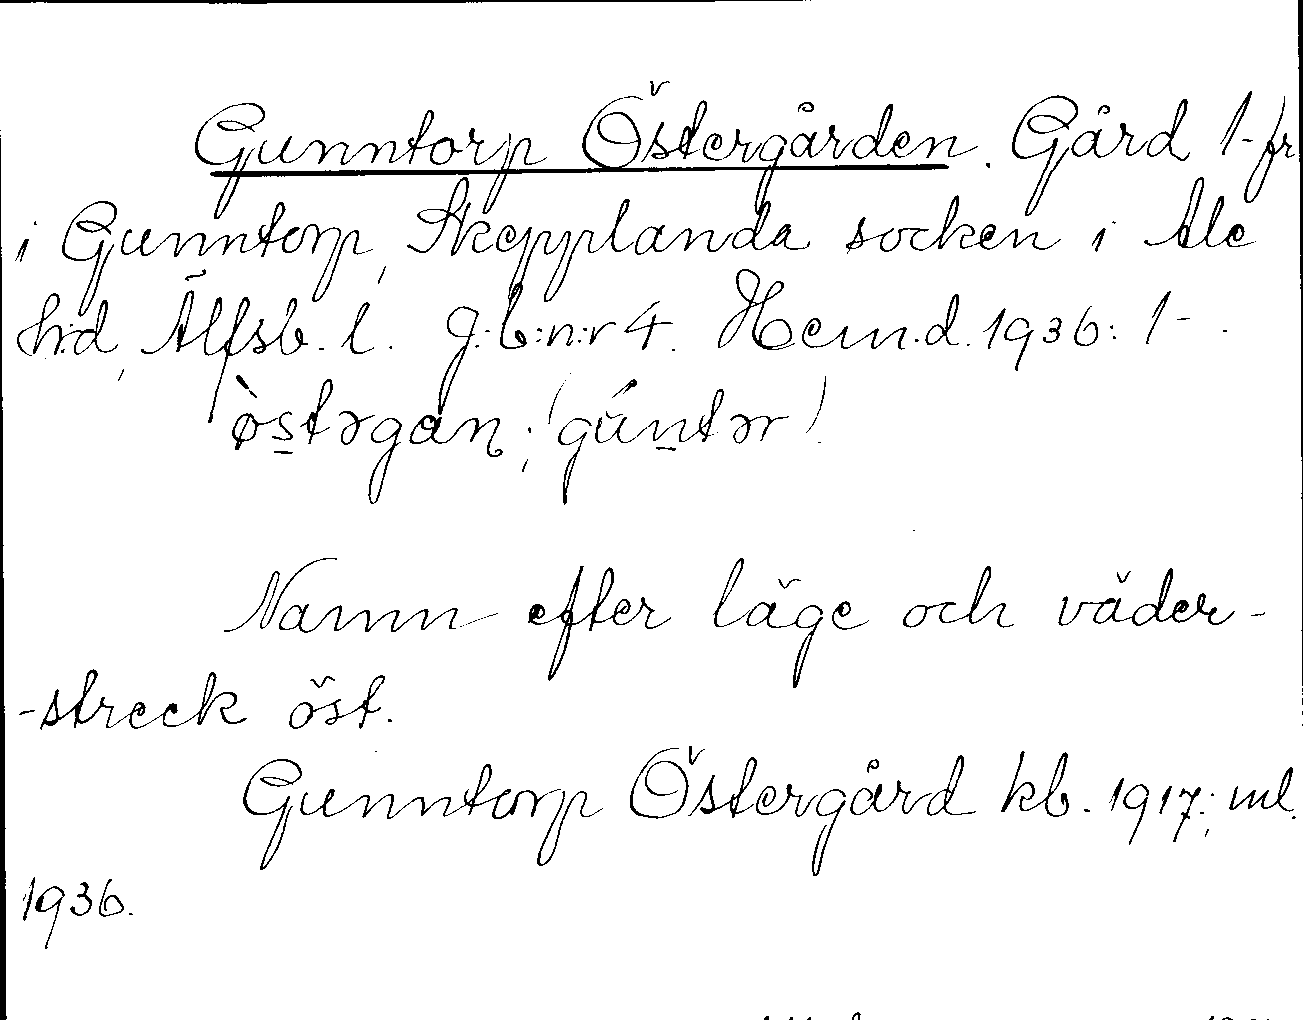 Gunntorp Östergården. Gård 1-fr
i Gunntorp, Skepplanda socken i Ale
h:d, Älfsb. l. g:b:n:r 4. Hem.d. 1936: 1-.
; (
Namn efter läge och väder-
-streck öst.
Gunntorp Östergård kb. 1917.; ml.
1936.